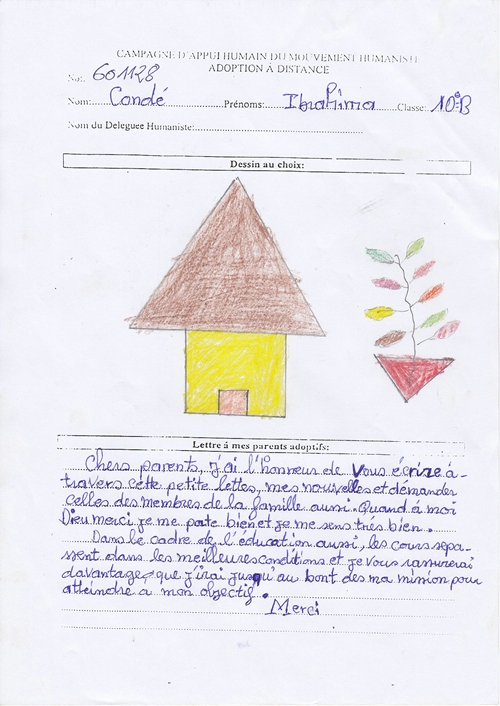 CAMPAGNE D'APPUI HUMAIN DU MOUVEMENT HUMANISTE
ADOPTION À DISTANCE
No: 601128
Nom:......Condé...............Prénoms:.......Ibrahima.......Classe: 10èB
Nom du Deleguee Humaniste:..................................................
Dessin au choix:
Lettre á mes parents adoptifs:
Chers parents, j'ai l'honneur de vous écrire à-
travers cette petite lettes, mes nouvelles et démander
celles des membres de la famille aussi. Quand à moi
Dieu merci je me porte bien et je me sens très bien.
Dans le cadre de l'éducation aussi, les cours sepa-
ssent dans les meilleures conditions et je vous rassurerai
davantage que j'irai jusqu'au bont des ma mission pour
atteindre a mon objectif.
Merci